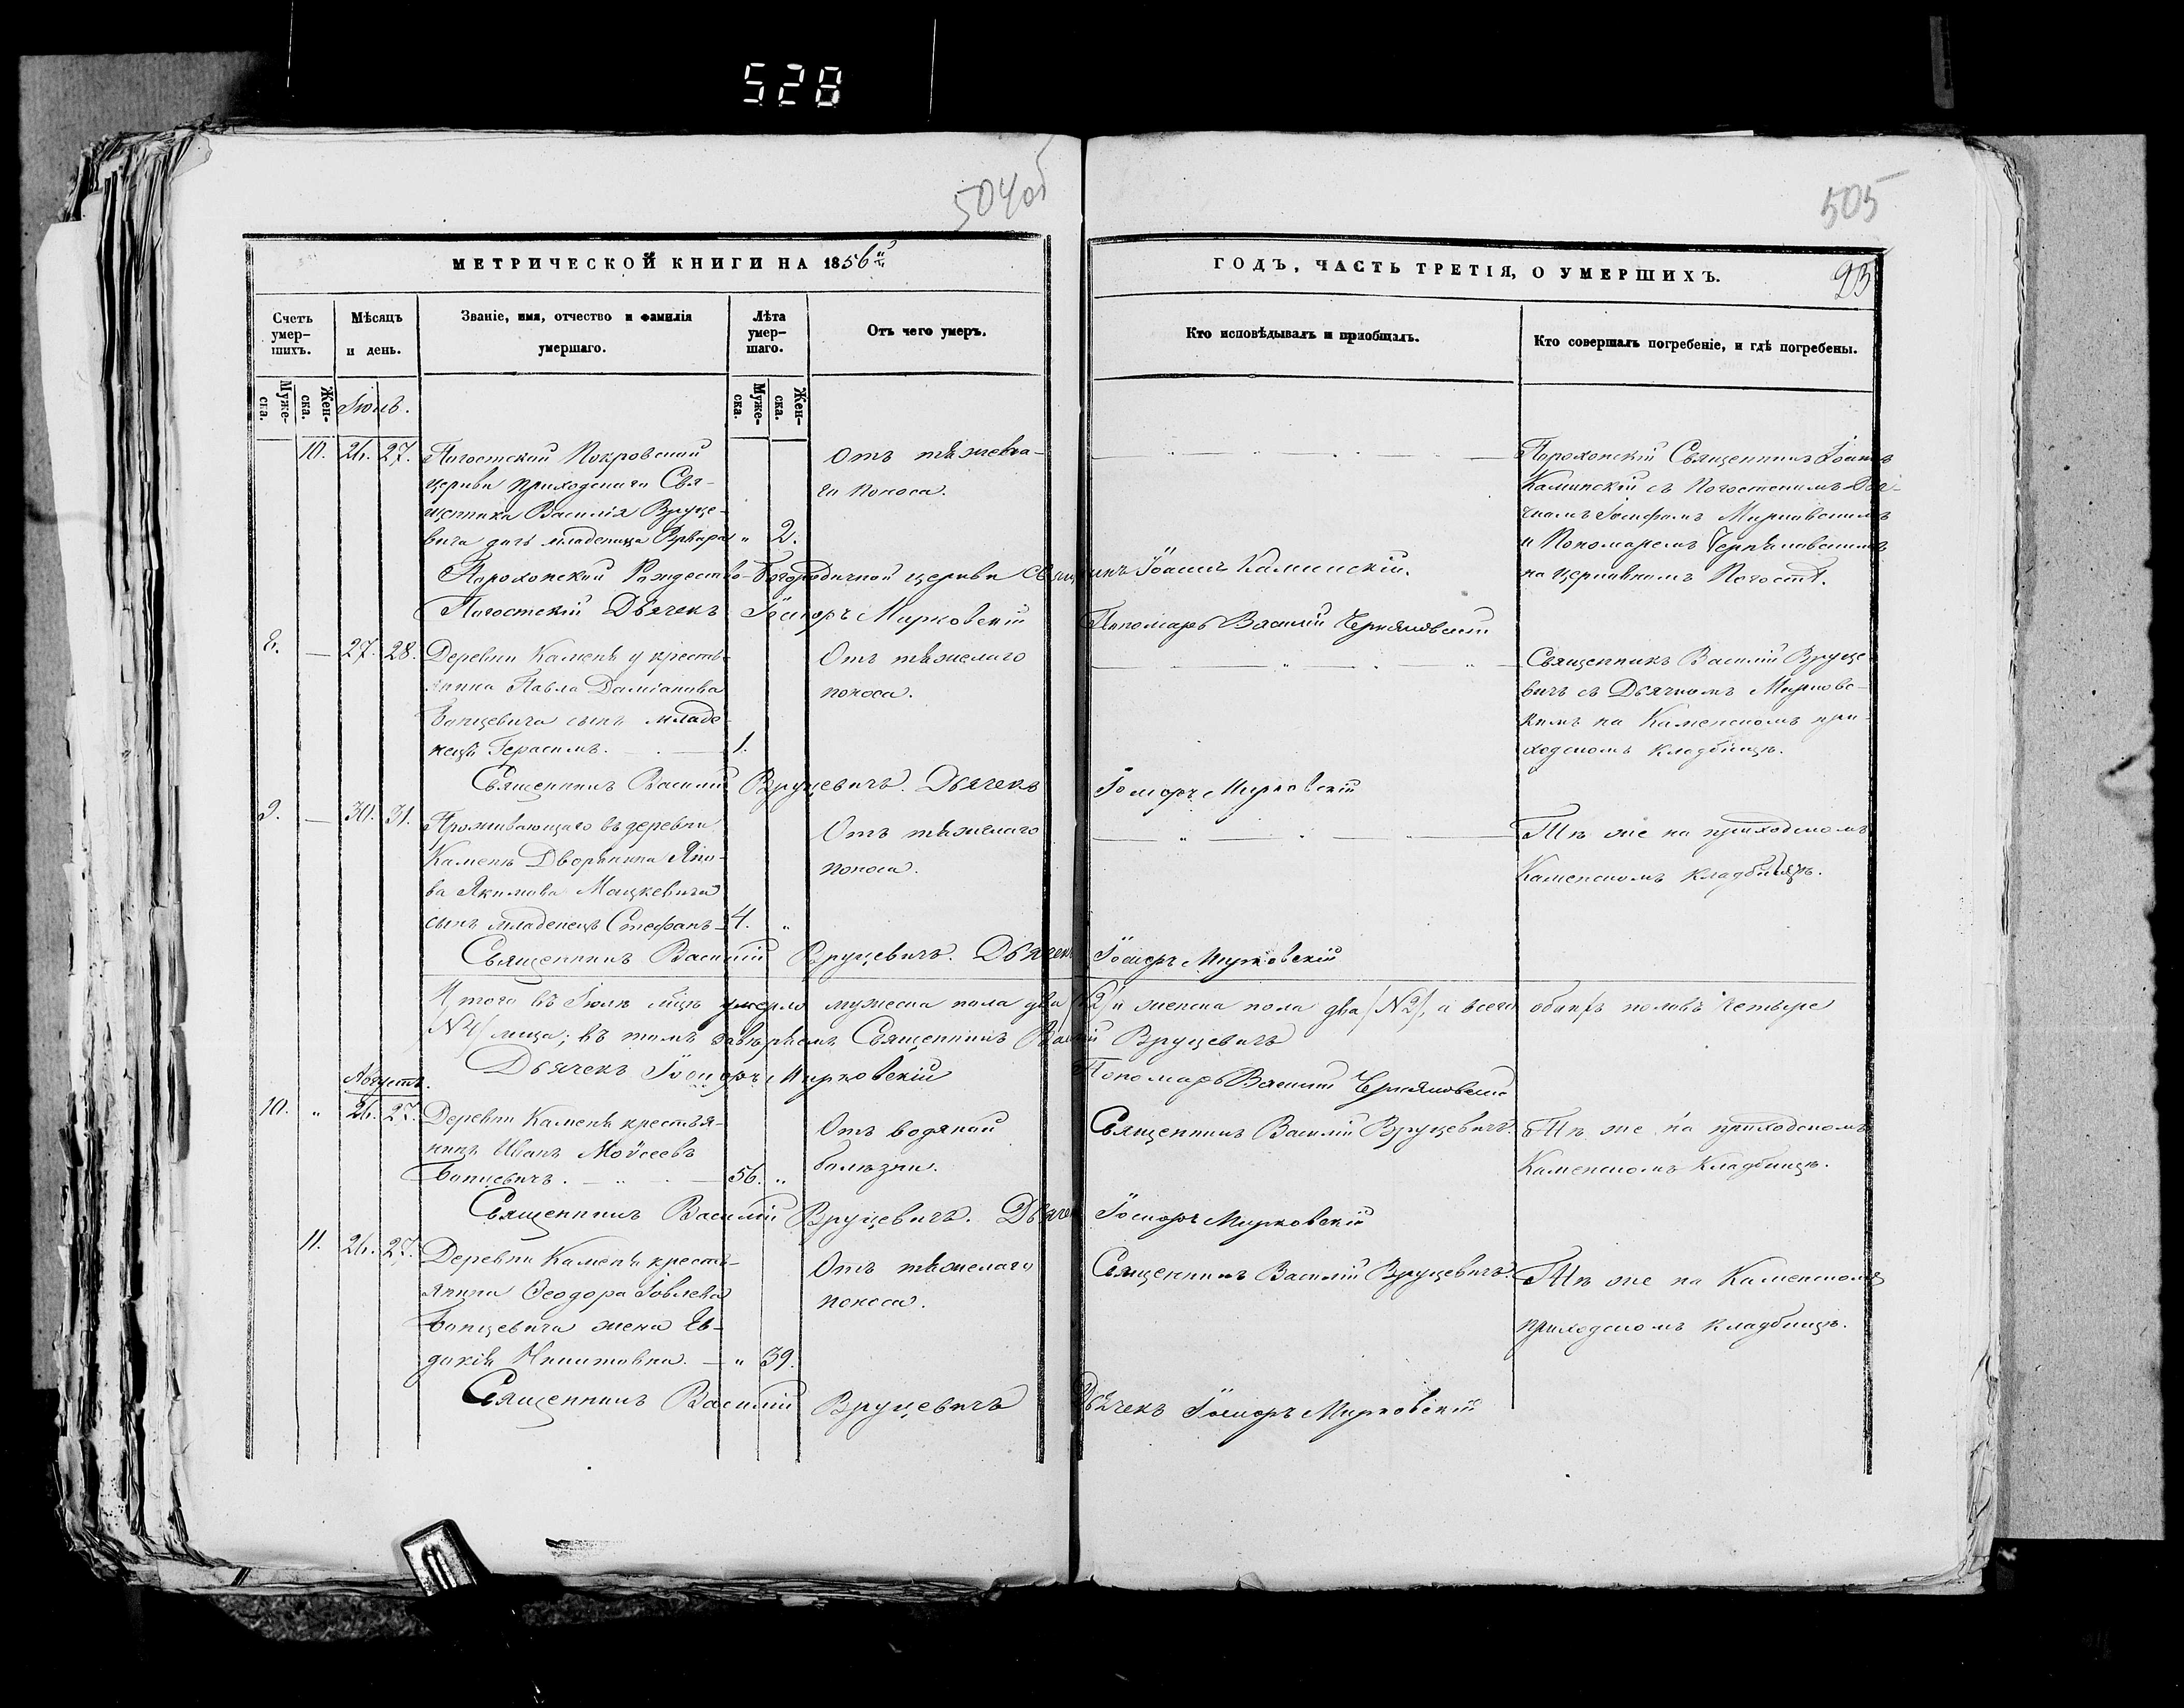 528
504об
505
МЕТРИЧЕСКОЙ КНИГИ НА 1856й
ГОДЪ, ЧАСТЬ ТРЕТІЯ, О УМЕРШИХЪ.
23
Счетъ умер-шихъ.
Мѣсяцъ и день.
Званіе, имя, отчество и фамилія
умершаго.
Лѣта умер-шаго.
Отъ чего умеръ.
Кто исповѣдывалъ и приобщалъ.
Кто совершалъ погребеніе, и гдѣ погребены.
Муже-ска.
Жен-ска.
Іюль.
Муже-ска.
Жен-ска.
10. 26. 27.
Погостской Покровской
церкви приходскаго Свя-
щенника Василія Вруце-
вича дочь младеница Варвара " 2.
Отъ тяжела-
го поноса.
Парохонскій Священникъ Іоаннъ
Каминскій съ Погостскимъ Дья-
чкомъ Іосифомъ Мирковскимъ
и Пономаремъ Черняковскимъ
на церковномъ Погостѣ.
Парохонской Рождество-Богородичной церкви Священникъ Іоаннъ Каминскій.
Погостскій Дьячекъ Іосифъ Мирковскій Пономарь Василій Черняковскій
8. — 27. 28.
Деревни Каменя у кресть-
янина Павла Даміанова
Бопцевича сынъ младе-
нецъ Герасимъ. 1.
Отъ тяжелаго
поноса.
Священникъ Василій Вруце-
вичъ съ Дьячкомъ Мирковс-
кимъ на Каменскомъ при-
ходскомъ кладбищѣ.
Священникъ Василій Вруцевичъ. Дьячекъ Іосифъ Мирковскій
9. — 30. 31.
Проживающаго въ деревни
Каменѣ Дворянина Яко-
ва Якимова Мацкевича
сынъ младенецъ Стефанъ 4. "
Отъ тяжелаго
поноса.
Тѣ же на приходскомъ
Каменскомъ кладбищѣ.
Священникъ Василій Вруцевичъ. Дьячекъ Іосифъ Мирковскій
Итого въ Іюлѣ м҃цѣ умерло мужеска пола два /№2/ и женска пола два /№2/, а всего обоихъ половъ четыре
/№4/ лица; въ томъ завѣряемъ Священникъ Василій Вруцевичъ
Дьячекъ Іосифъ Мирковскій Пономарь Василій Черняковскій
Августъ.
10. " 26. 27.
Деревни Каменя крестья-
нинъ Иванъ Моѵсеевъ
Бопцевичъ. 56. "
Отъ водяной
болѣзни.
Священникъ Василій Вруцевичъ.
Тѣ же на приходскомъ
Каменскомъ Кладбищѣ.
Священникъ Василій Вруцевичъ. Дьячекъ Іосифъ Мирковскій
11. 26. 27.
Деревни Каменя кресть-
янина Ѳеодора Іовлева
Бопцевича жена Ев-
докія Никитовна. — " 39.
Отъ тяжелаго
поноса.
Священникъ Василій Вруцевичъ.
Тѣ же на Каменскомъ
приходскомъ кладбищѣ.
Священникъ Василій Вруцевичъ Дьячекъ Іосифъ Мирковскій